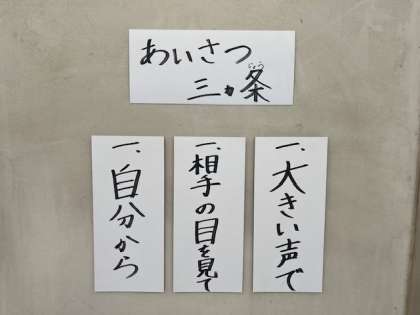 あいさつ
三カ条
じょう
一、大きい声で
一、相手の目を見て
一、自分から